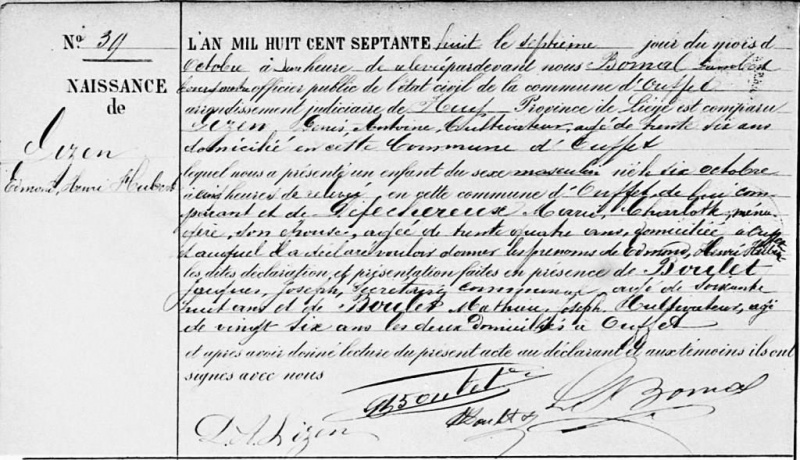 Nº 39
NAISSANCE
de
Lizen
Edmond, Henri Hubert
L'AN MIL HUIT CENT SEPTANTE huit le septième jour du mois d
Octobre à heure de relevée pardevant nous Bomal
officier public de l'état civil de la commune d'Ouffet
arrondissement judiciaire de Huy Province de Liège est comparu
Lizen Denis, Antoine, Cultivateur, agé de trente six ans
domicilié en cette Commune d'Ouffet
lequel nous a présenté un enfant du sexe masculin né le six octobre
à cinq heures de relevée, en cette commune d'Ouffet, de lui com-
parant et de Défechereux Marie, Charlotte, ména-
gère, son Epouse, agée de trente quatre ans, domiciliée à Ouffet
et auquel il a déclaré vouloir donner les prénoms de Edmond, Henri Hubert
les dites déclaration, et présentation faites en présence de Boulet
Jacques, Joseph, Secrétaire communal, agé de soixante
huit ans et de Boulet Mathieu, Joseph, Cultivateur, agé
de vingt six ans les deux domiciliés à Ouffet
et après avoir donné lecture du présent acte au déclarant et aux témoins ils ont
signés avec nous
Boulet
Boulet
Bomal
D. A. Lizen